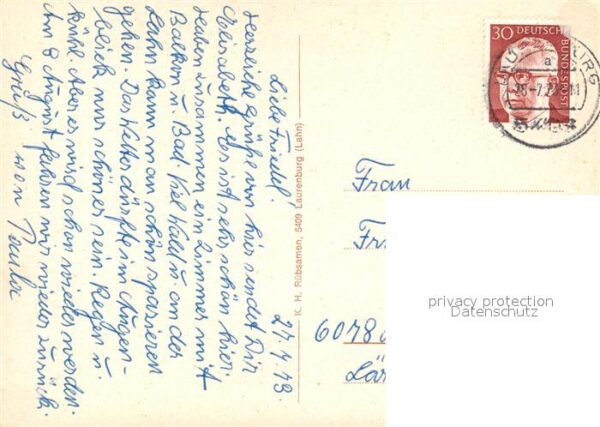 27.7.73
Liebe Friedel!
Herzliche Grüße von hier sendet Dir
Elisabeth. Es ist sehr schön hier.
haben zusammen ein Zimmer mit
Balkon u. Bad. Viel Wald u. an der
Lahn kann man schön spazieren
gehen. Das Wetter dürfte im Augen-
blick nur schöner sein. Regen u.
kühl. Aber es wird schon wieder werden.
Am 8 August fahren wir wieder zurück.
Gruß von
K. H. Rübsamen, 5409 Laurenburg (Lahn)
30 DEUTSCHE
BUNDESPOST
a
Frau
Fr
6078
Lär
privacy protection
Datenschutz